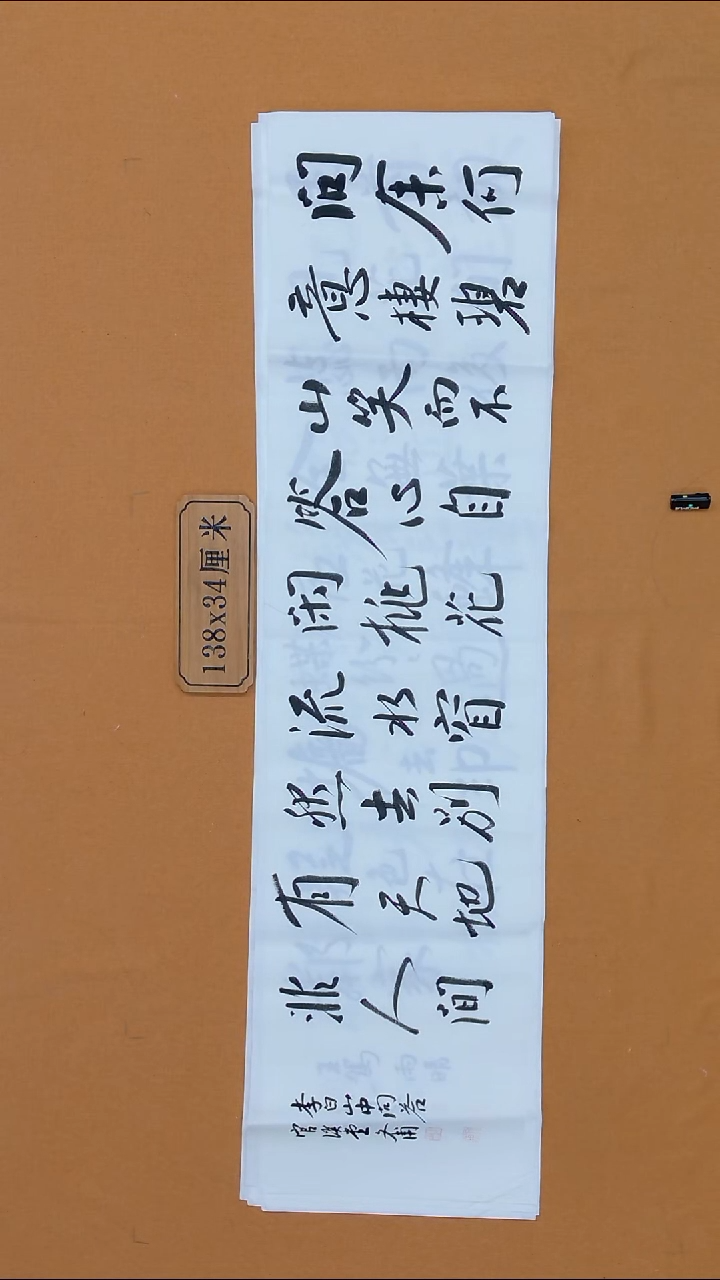 问余何
意棲碧
山笑而不
答心自
闲桃花
流水窅
然去别
有天地
非人间
李白山中问答
138x34厘米